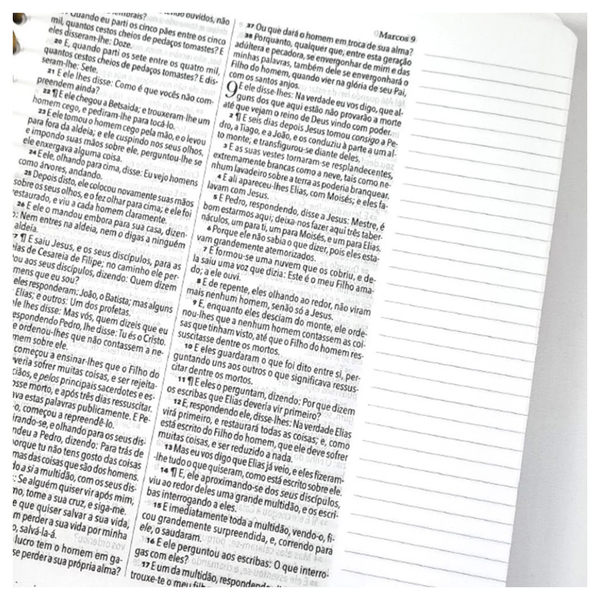 Marcos 9
ouvidos, não
quando eu parti os cinco pães entre os cinco
mil, quantos cestos cheios de pedaços tomastes? E
eles disseram-lhe: Doze.
20 E, quando parti os sete entre os quatro mil,
quantos cestos cheios de pedaços tomastes? E dis-
seram-lhe: Sete.
21 E ele lhes disse: Como é que vocês não com-
preendem ainda?
22 ¶ E ele chegou a Betsaida; e trouxeram-lhe um
homem cego, e pediram-lhe para tocá-lo.
23 E ele tomou o homem cego pela mão, e o levou
para fora da aldeia; e ele cuspindo nos seus olhos,
e impondo suas mãos sobre ele, perguntou-lhe se
ele enxergava alguma coisa.
24 E ele, olhando para cima, disse: Eu vejo homens
como árvores, andando.
25 Depois disto, ele colocou novamente suas mãos
sobre os seus olhos, e o fez olhar para cima; e ele foi
restaurado, e viu a cada homem claramente.
26 E ele o mandou embora para sua casa, dizen-
Nem entres na aldeia, nem o digas a ninguém
aldeia.
¶ E saiu Jesus, e os seus discípulos, para as
de Cesareia de Filipe; no caminho ele per-
aos seus discípulos, dizendo: Quem dizem
homens que eu sou?
eles responderam: João, o Batista; mas alguns
Elias; e outros: Um dos profetas.
ele lhes disse: Mas vós, quem dizeis que eu
respondendo Pedro, lhe disse: Tu és o Cristo.
e ordenou-lhes que não contassem a ne-
homem sobre ele.
começou a ensinar-lhes que o Filho do
sofrer muitas coisas, e ser rejeita-
e pelos principais sacerdotes e es-
morto, e após três dias ressuscitar.
estas palavras publicamente. E Pe-
começou a repreendê-lo.
e olhando para os seus dis-
Pedro, dizendo: Para trás de
porque tu não tens gosto das coisas
mas das coisas que são dos homens.
a si a multidão, com os seus dis-
Se alguém quiser vir após mim,
tome a sua cruz, e siga-me.
que quiser salvar a sua vida,
perder a sua vida por minha
salvá-la-á.
lucro tem o homem em ga-
se perder a sua própria alma?
37 Ou que dará o homem em troca de sua alma?
38 Porquanto, qualquer que, entre esta geração
adúltera e pecadora, se envergonhar de mim e das
minhas palavras, também dele se envergonhará o
Filho do homem, quando vier na glória de seu Pai,
com os santos anjos.
9 E ele disse-lhes: Na verdade eu vos digo, que al-
guns dos que aqui estão não provarão a morte
até que vejam o reino de Deus vindo com poder.
2 ¶ E seis dias depois Jesus tomou consigo a Pe-
dro, a Tiago, e a João, e os conduziu à parte a um al-
to monte; e transfigurou-se diante deles.
3 E as suas vestes tornaram-se resplandecentes,
extremamente brancas como a neve, tais como ne-
nhum lavadeiro sobre a terra as poderia branquear.
4 E ali apareceu-lhes Elias, com Moisés; e eles fa-
lavam com Jesus.
5 E Pedro, respondendo, disse a Jesus: Mestre, é
bom estarmos aqui; deixa-nos fazer aqui três taber-
náculos, um para ti, um para Moisés, e um para Elias.
6 Porque ele não sabia o que dizer, pois eles esta-
vam grandemente atemorizados.
7 E formou-se uma nuvem que os cobriu, e de-
la saiu uma voz que dizia: Este é o meu Filho ama-
do; a ele ouvi.
8 E de repente, eles olhando ao redor, não viram
mais nenhum homem, senão só a Jesus.
9 E, enquanto eles desciam do monte, ele orde-
nou-lhes que a nenhum homem contassem as coi-
sas que tinham visto, até que o Filho do homem res-
suscitasse dentre os mortos.
10 E eles guardaram o que foi dito entre si, per-
guntando uns aos outros o que significava ressus-
citar dentre os mortos.
11 ¶ E eles o perguntam, dizendo: Por que dizem
os escribas que Elias deveria vir primeiro?
12 E, respondendo ele, disse-lhes: Na verdade Elias
virá primeiro, e restaurará todas as coisas; e, como
está escrito do Filho do homem, que ele deve sofrer
muitas coisas, e ser reduzido a nada.
13 Mas eu vos digo que Elias já veio, e eles fizeram-
-lhe tudo o que quiseram, como está escrito sobre ele.
14 ¶ E, ele aproximando-se dos seus discípulos,
viu ao redor deles uma grande multidão, e os escri-
bas interrogando a eles.
15 E imediatamente toda a multidão, vendo-o, fi-
cou grandemente surpreendida, e, correndo para
ele, o saudaram.
16 E ele perguntou aos escribas: O que interro-
gas com eles?
17 E um da multidão, respondendo,
trouxe-te o meu filho